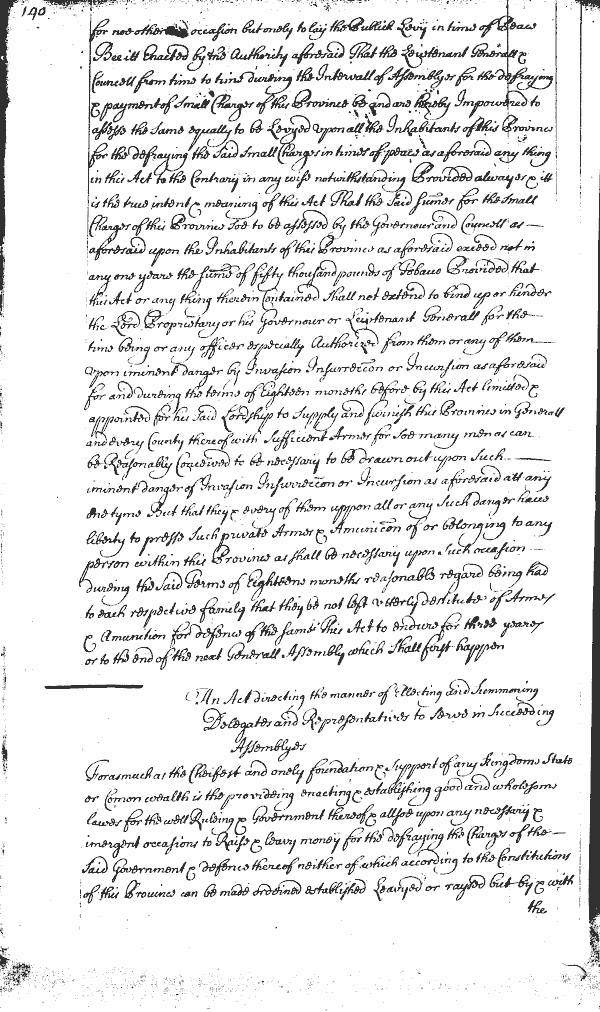 140
for noe other occasion but onely to lay the Publick Levy in time of Peace
Bee itt Enacted by the Authority aforesaid That the Leiutenant Generall &
Councell from time to time dureing the Intervall of Assemblyes for the defraying
& payment of Small Charges of this Province be and are hereby Impowered to
assesse the Same equally to be Levyed upon all the Inhabitants of this Province
for the defraying the Said Small Charges in times of peace as aforesaid any thing
in this Act to the Contrary in any wise notwithstanding Provided alwayes & itt
is the true intent & meaning of this Act That the Said Summes for the Small
Charges of this Province Soe to be assessed by the Governour and Councell as
aforesaid upon the Inhabitants of this Province as aforesaid exceed not in
any one yeare the Summe of fifty thousand pounds of Tobaco Provided that
this Act or any thing therein Contained Shall not extend to bind up or hinder
the Lord Proprietary or his Governour or Leiutenant Generall for the
time being or any officer especially Authorized from them or any of them
upon iminent danger by Invasion Insurreccon or Incursion as aforesaid
for and dureing the terme of Eighteen moneths before by this Act limitted &
appointed for his Said Lordship to Supply and furnish this Province in Generall
and every County thereof with Sufficient Armes for Soe many men as can
be Reasonably Conceived to be necessary to be drawn out upon Such
iminent danger of Invasion Insurreccon or Incursion as aforesaid att any
one tyme But that they & every of them uppon all or any Such danger have
liberty to presse Such private Armes & Amunicon of or belonging to any
person within this Province as shall be necessary upon Such occasion
dureing the Said Terme of Eighteene moneths reasonable regard being had
to each respective family that they be not left utterly destitute of Armes
& Amunition for defence of the Same This Act to endure for three yeares
or to the end of the next Generall Assembly which Shall first happen
An Act directing the manner of Electing and Summoning
Delegates and Representatives to Serve in Succeeding
Assemblyes
Forasmuch as the Cheifest and onely foundation & Support of any Kingdome State
or Comon wealth is the provideing enacting & establishing good and wholesome
lawes for the well Ruleing & Government thereof & allsoe upon any necessary &
imergent occasions to Raise & leavy money for the defraying the Charges of the
Said Government & defence thereof neither of which according to the Constitutions
of this Province can be made ordeined established Leavyed or raysed but by & with
the